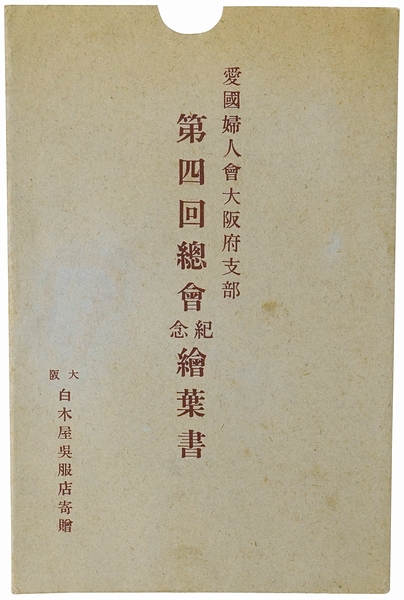 愛國婦人會大阪府支部
第四回總會紀念繪葉書
大阪
白木屋呉服店寄贈